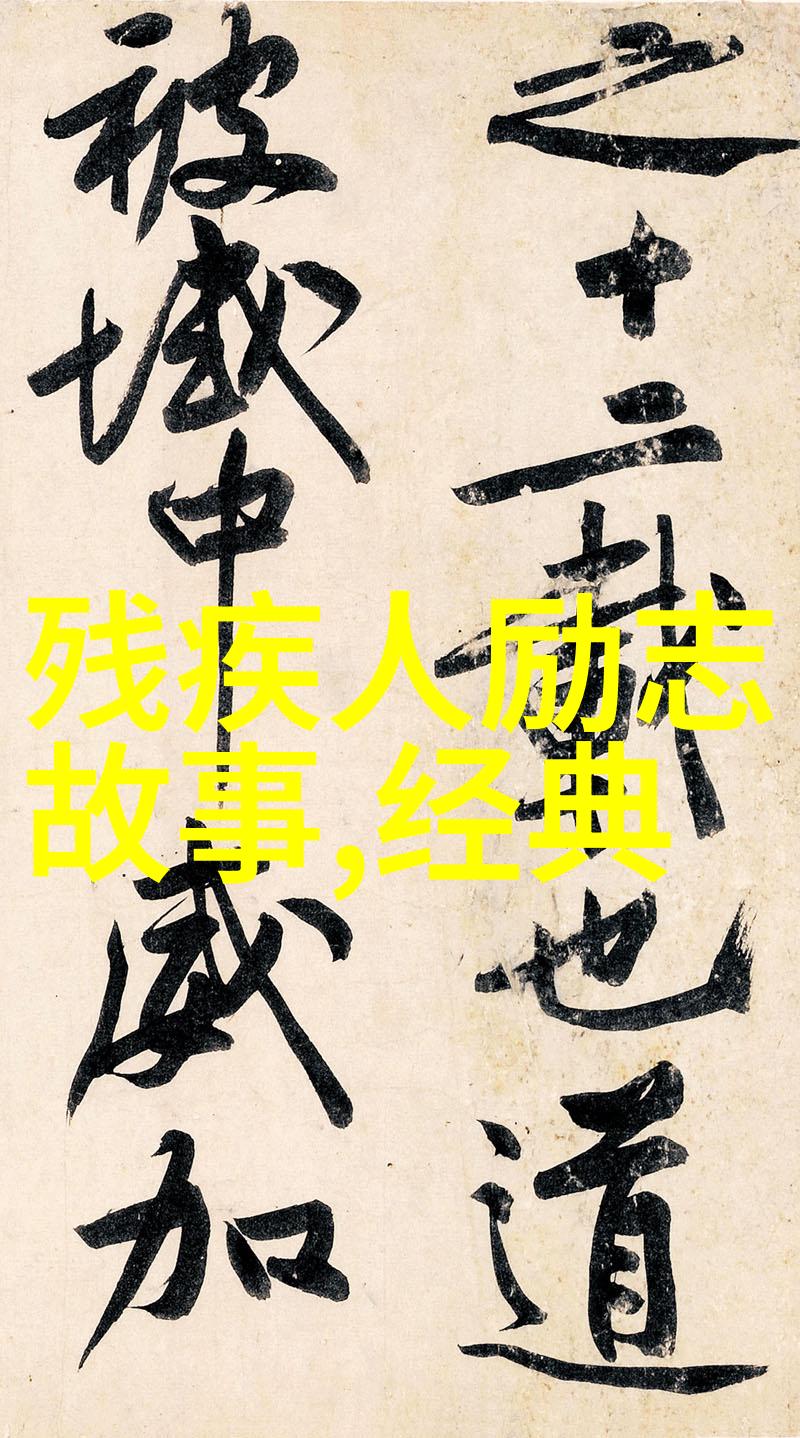 之十二載也道
被域中威加
残疾人励志
故事,经典